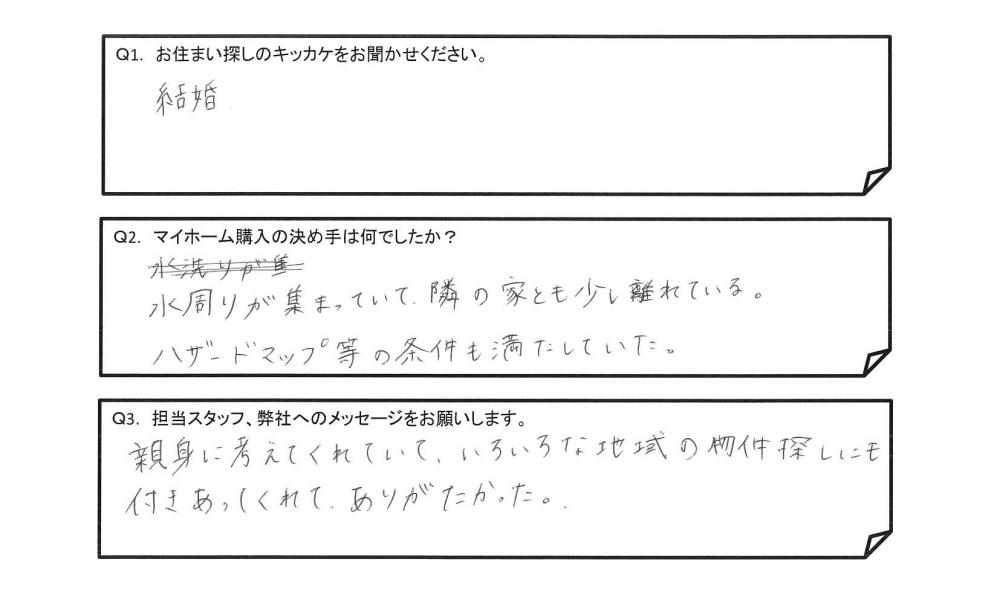 Q1. お住まい探しのキッカケをお聞かせください。
結婚
Q2. マイホーム購入の決め手は何でしたか？
水洗りが集
水周りが集まっていて、隣の家とも少し離れている。
ハザードマップ等の条件も満たしていた。
Q3. 担当スタッフ、弊社へのメッセージをお願いします。
親身に考えてくれていて、いろいろな地域の物件探しにも
付きあってくれて、ありがたかった。